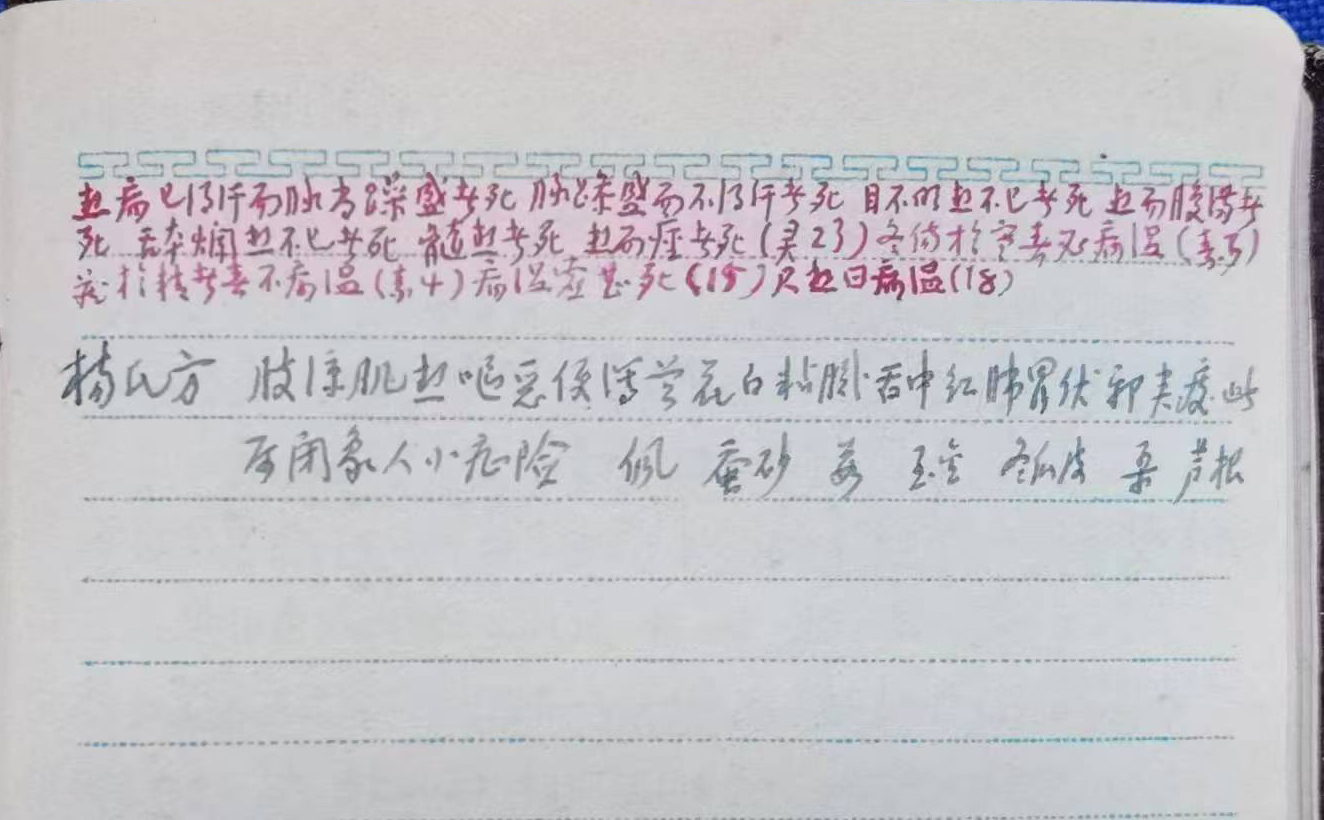 热病已得汗而脉尚躁盛者死 脉躁盛而不得汗者死 目不明热不已者死 热而腹满者
死 舌本烂热不已者死 髓热者死 热而痉者死(灵23)冬伤于寒春必病温(素3)
藏于精者春不病温(素4)病温虚甚死(18)尺热曰病温(18)
杨氏方 肢凉肌热呕恶便泻苔白粘腻舌中红肺胃伏邪夹痰此
属闭象人小症险 佩 蚕砂 玉金 冬瓜皮 桑 芦根